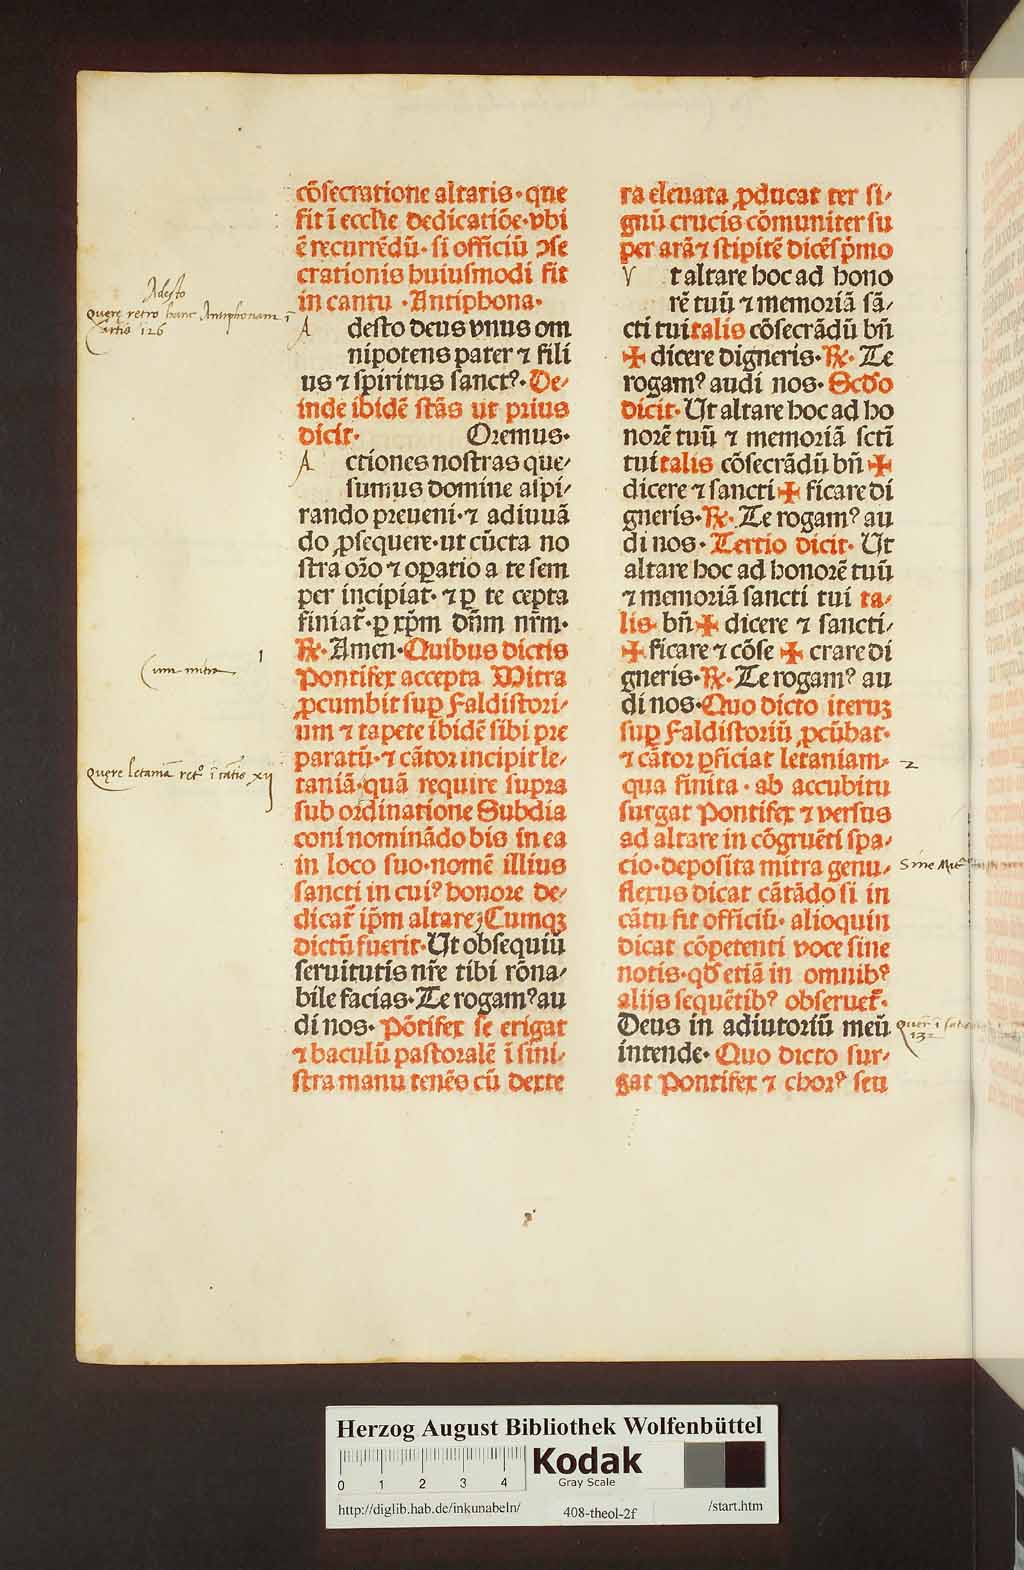 cōsecratione altaris· que
fit ī eccłie dedicatiōe·vbi
ē recurrēdū· si officiū ↄse
crationis huiusmodi fit
in cantu ·Antiphona·
A desto deus vnus om
nipotens pater ⁊ fili
us ⁊ spiritus sanctꝰ· De⸗
inde ibidē stās ut prius
dicit· Oremus·
A ctiones nostras que⸗
sumus domine aspi⸗
rando preueni·⁊ adiuuā
do ꝓsequere·ut cūcta no
stra orō ⁊ oꝑatio a te sem
per incipiat· ⁊ ꝑ te cepta
finiat᷑·ꝑ xp̄m dn̄m nr̄m·
℟· Amen· Quibus dictis
Pontifex accepta Mitra
ꝓcumbit suꝑ Faldistori⸗
um ⁊ tapete ibidē sibi pre
paratū·⁊ cātor incipit le⸗
taniā·quā require supra
sub ordinatione Subdia
coni nominādo bis in ea
in loco suo·nomē illius
sancti in cuiꝰ honore de⸗
dicat᷑ ip̄m altareꝫ Cumqꝫ
dictū fuerit·Ut obsequiū
seruitutis nr̄e tibi rōna⸗
bile facias·Te rogamꝰ au
di nos· Pōtifex se erigat
⁊ baculū pastoralē ī sini⸗
stra manu tenēs cū dexte
ra eleuata ꝓducat ter si⸗
gnū crucis cōmuniter su
per arā ⁊ stipitē dicēs p̄mo
V t altare hoc ad hono
rē tuū ⁊ memoriā sā⸗
cti tui talis cōsecrādū bn̄
✠ dicere digneris· ℟· Te
rogamꝰ audi nos· Scdo
dicit· Ut altare hoc ad ho
norē tuū ⁊ memoriā scti
tui talis cōsecrādū bn̄ ✠
dicere ⁊ sancti ✠ ficare di
gneris·℟· Te rogamꝰ au
di nos· Tertio dicit· Ut
altare hoc ad honorē tuū
⁊ memoriā sancti tui ta⸗
lis bn̄ ✠ dicere ⁊ sancti⸗
✠ ficare ⁊ cōse ✠ crare di
gneris·℟· Te rogamꝰ au
di nos·Quo dicto iteruꝫ
suꝑ Faldistoriū ꝓcūbat·
⁊ cātor ꝑficiat letaniam·
qua finita · ab accubitu
surgat Pontifex ⁊ versus
ad altare in cōgruēti spa⸗
cio·deposita mitra genu⸗
flexus dicat cātādo si in
cātu fit officiū· alioquin
dicat cōpetenti voce sine
notis·qđ etiā in omnibꝰ
alijs sequētibꝰ obseruet᷑·
Deus in adiutoriū meū
intende· Quo dicto sur⸗
gat Pontifex ⁊ chorꝰ seu
Adesto
Quere retro hanc Antiphonam ī
cartis 126
Cum mitra 1
Quere letaniā ret° ī cartis xij
2
Sine Mit
132
Herzog August Bibliothek Wolfenbüttel
0 1 2 3 4
Kodak
Gray Scale
http://diglib.hab.de/inkunabeln/
408-theol-2f
/start.htm